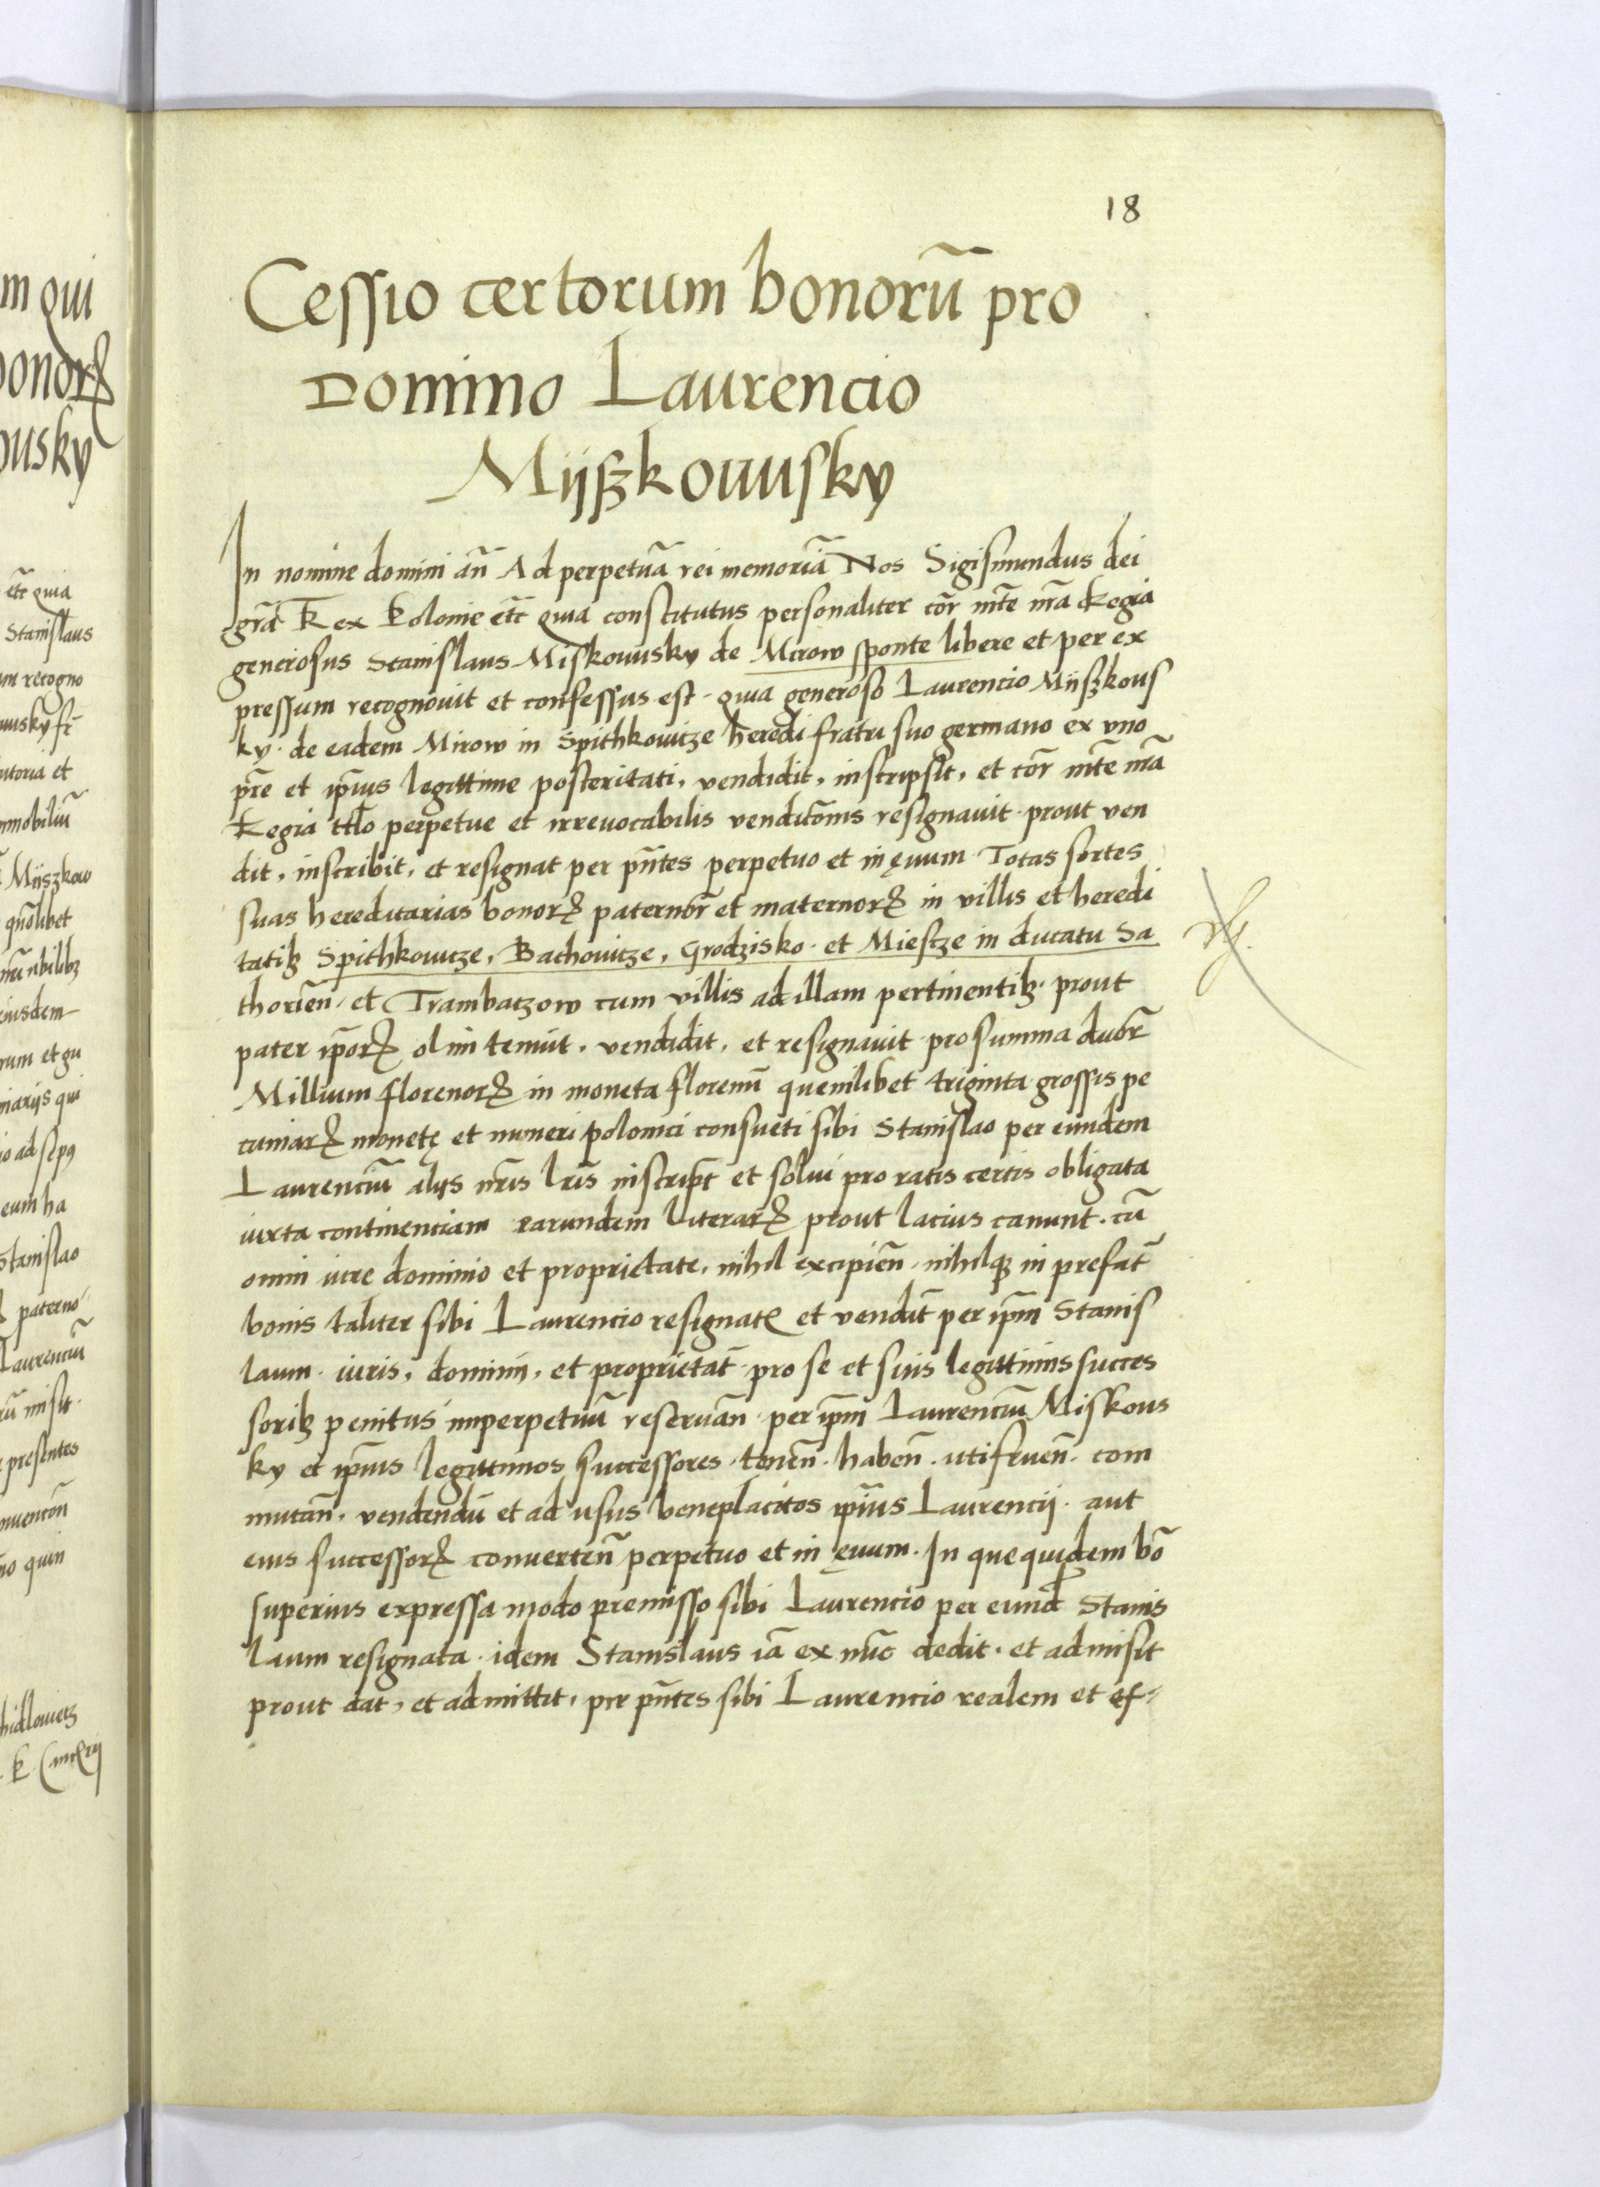 18
Cessio certorum bonorū pro
Domino Laurencio
Mijszkowsky
In nomine domini am̄ Ad perpetuā rei memoriā Nos Sigismundus dei
gr̄a Rex Polonie etc̄ quia constitutus personaliter cor̄ mt̄e nr̄a Regia
generosus Stanislaus Miskowsky de Mirow sponte libere et per ex
pressum recognovit et confessus est · quia generoso Laurencio Mijszkows
ky · de eadem Mirow in Spithkowicze heredi fratri suo germano ex vno
pr̄e et ip̄ius legittime posteritati, vendidit, inscripsit, et cor̄ mt̄e nr̄a
Regia ttl̄o perpetue et irrevocabilis vendicōnis resignavit · prout ven
dit, inscribit, et resignat per pn̄tes perpetuo et in ęvum · Totas sortes
suas hereditarias bonorꝝ paternor̄ et maternorꝝ in villis et heredi
tatibꝫ Spithkovicze, Bachovicze, Grodzisko · et Miescze in ducatu Sa
thorien̄ · et Trambaczow cum villis ad illam pertinentibꝫ · prout
pater ip̄orꝝ olim tenuit, vendidit, et resignavit · pro summa duor̄
Millium florenorꝝ in moneta florenū quemlibet triginta grossis pe
cuniarꝝ monetę et numeri polonici consueti sibi Stanislao per eundem
Laurenciū alijs nr̄is lr̄is inscript̄ et solvi pro ratis certis obligata
iuxta continenciam earundem literarꝝ prout lacius canunt · cū
omni iure dominio et proprietate, nihil excipien̄ · nihilqꝫ in prefat̄
bonis taliter sibi Laurencio resignatꝭ et vendit̄ per ip̄m Stanis
laum · iuris, dominij, et proprietat̄ · pro se et suis legittimis succes
soribꝫ penitus imperpetuū reservan̄ · per ip̄m Laurenciū Misskows
ky et ip̄ius legittimos successores · tenen̄ · haben̄ · utifruen̄ · com
mutan̄ · vendendū et ad usus beneplacitos ip̄ius Laurencij · aut
eius successorꝝ converten̄ perpetuo et in ęvum · In que quidem bō
superius expressa modo premisso sibi Laurencio per eund̄ Stanis
laum resignata · idem Stanislaus iā ex nūc dedit · et admisit
prout dat, et admittit, per pn̄tes sibi Laurencio realem et ef-